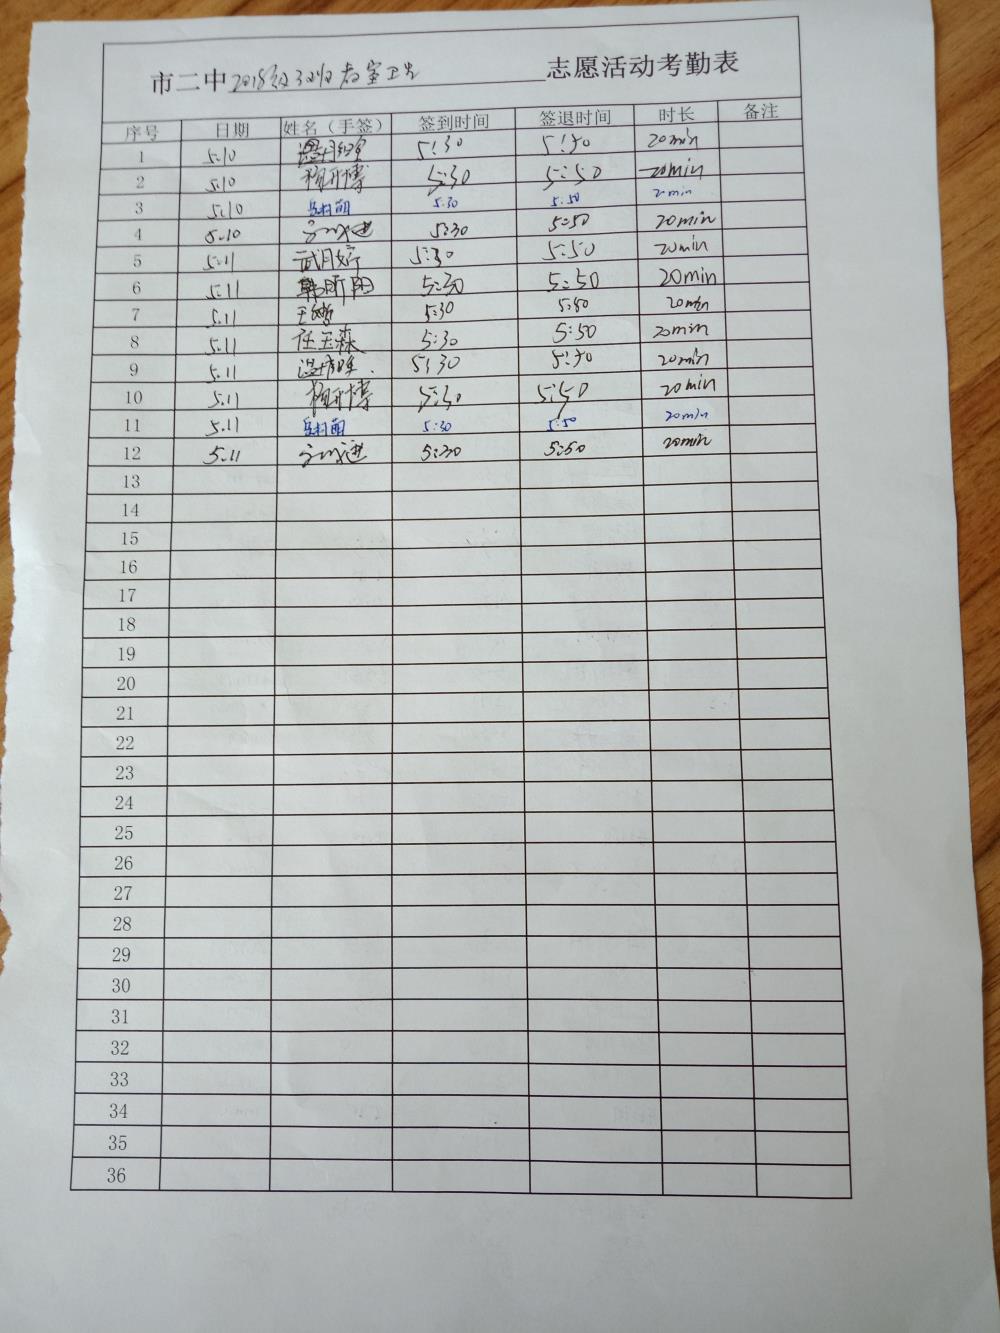 市二中2018级30班教室卫生志愿活动考勤表
序号 日期 姓名（手签） 签到时间 签退时间 时长 备注
1 5.10 5:30 5:50 20min
2 5.10 5:30 5:50 20min
3 5.10 5:30 5:50 20min
4 5.10 5:30 5:50 20min
5 5.11 武月婷 5:30 5:50 20min
6 5.11 韩昕阳 5:30 5:50 20min
7 5.11 5:30 5:50 20min
8 5.11 任玉森 5:30 5:50 20min
9 5.11 5:30 5:50 20min
10 5.11 5:30 5:50 20min
11 5.11 5:30 5:50 20min
12 5.11 5:30 5:50 20min
13
14
15
16
17
18
19
20
21
22
23
24
25
26
27
28
29
30
31
32
33
34
35
36